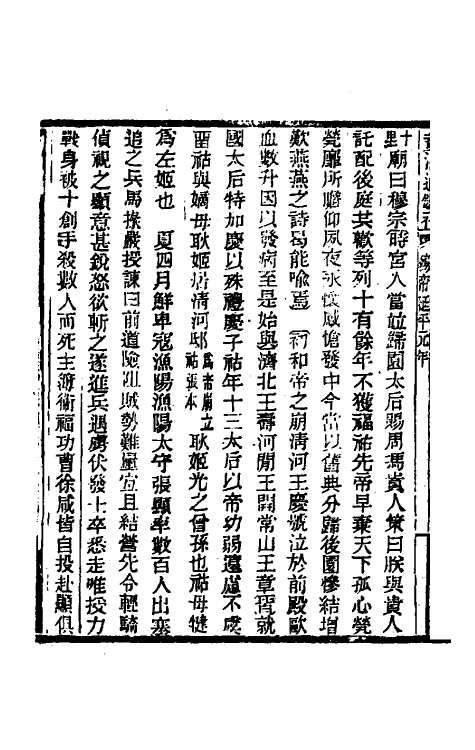 十里廟曰穆宗時宮人當竝歸園太后賜周馮貴人策曰朕與貴人
託配後庭共歡等列十有餘年不獲福祐先帝早棄天下孤心煢
煢靡所瞻仰夙夜永懷感愴發中今當以舊典分歸後園慘結增
歎燕燕之詩曷能喻焉　初和帝之崩清河王慶號泣於前殿歐
血數升因以發病至是始與濟北王壽河閒王開常山王章皆就
國太后特加慶以殊禮慶子祜年十三太后以帝幼弱遠慮不虞
畱祜與嫡母耿姬居清河邸爲帝崩立祜張本耿姬況之曾孫也祜母犍
爲左姬也　夏四月鮮卑寇漁陽漁陽太守張顯率數百人出塞
追之兵馬掾嚴授諫曰前道險阻賊勢難量宜且結營先令輕騎
偵視之顯意甚銳怒欲斬之遂進兵遇虜伏發士卒悉走唯授力
戰身被十創手殺數人而死主簿衛福功曹徐咸皆自投赴顯俱